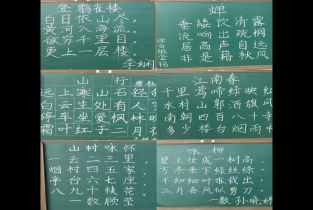 登鹳雀楼
白日依山尽，
黄河入海流。
欲穷千里目，
更上一层楼。
蝉
垂緌饮清露
流响出疏桐
居高声自远
非是藉秋风
山行
远上寒山石径斜
白云生处有人家
停车坐爱枫林晚
霜叶红于二月花
江南春
千里莺啼绿映红
水村山郭酒旗风
南朝四百八十寺
多少楼台烟雨中
山村咏怀
一去二三里，
烟村四五家。
亭台六七座，
八九十枝花。
一数 顾莹
咏柳
碧玉妆成一树高
万条垂下绿丝绦
不知细叶谁裁出
二月春风似剪刀